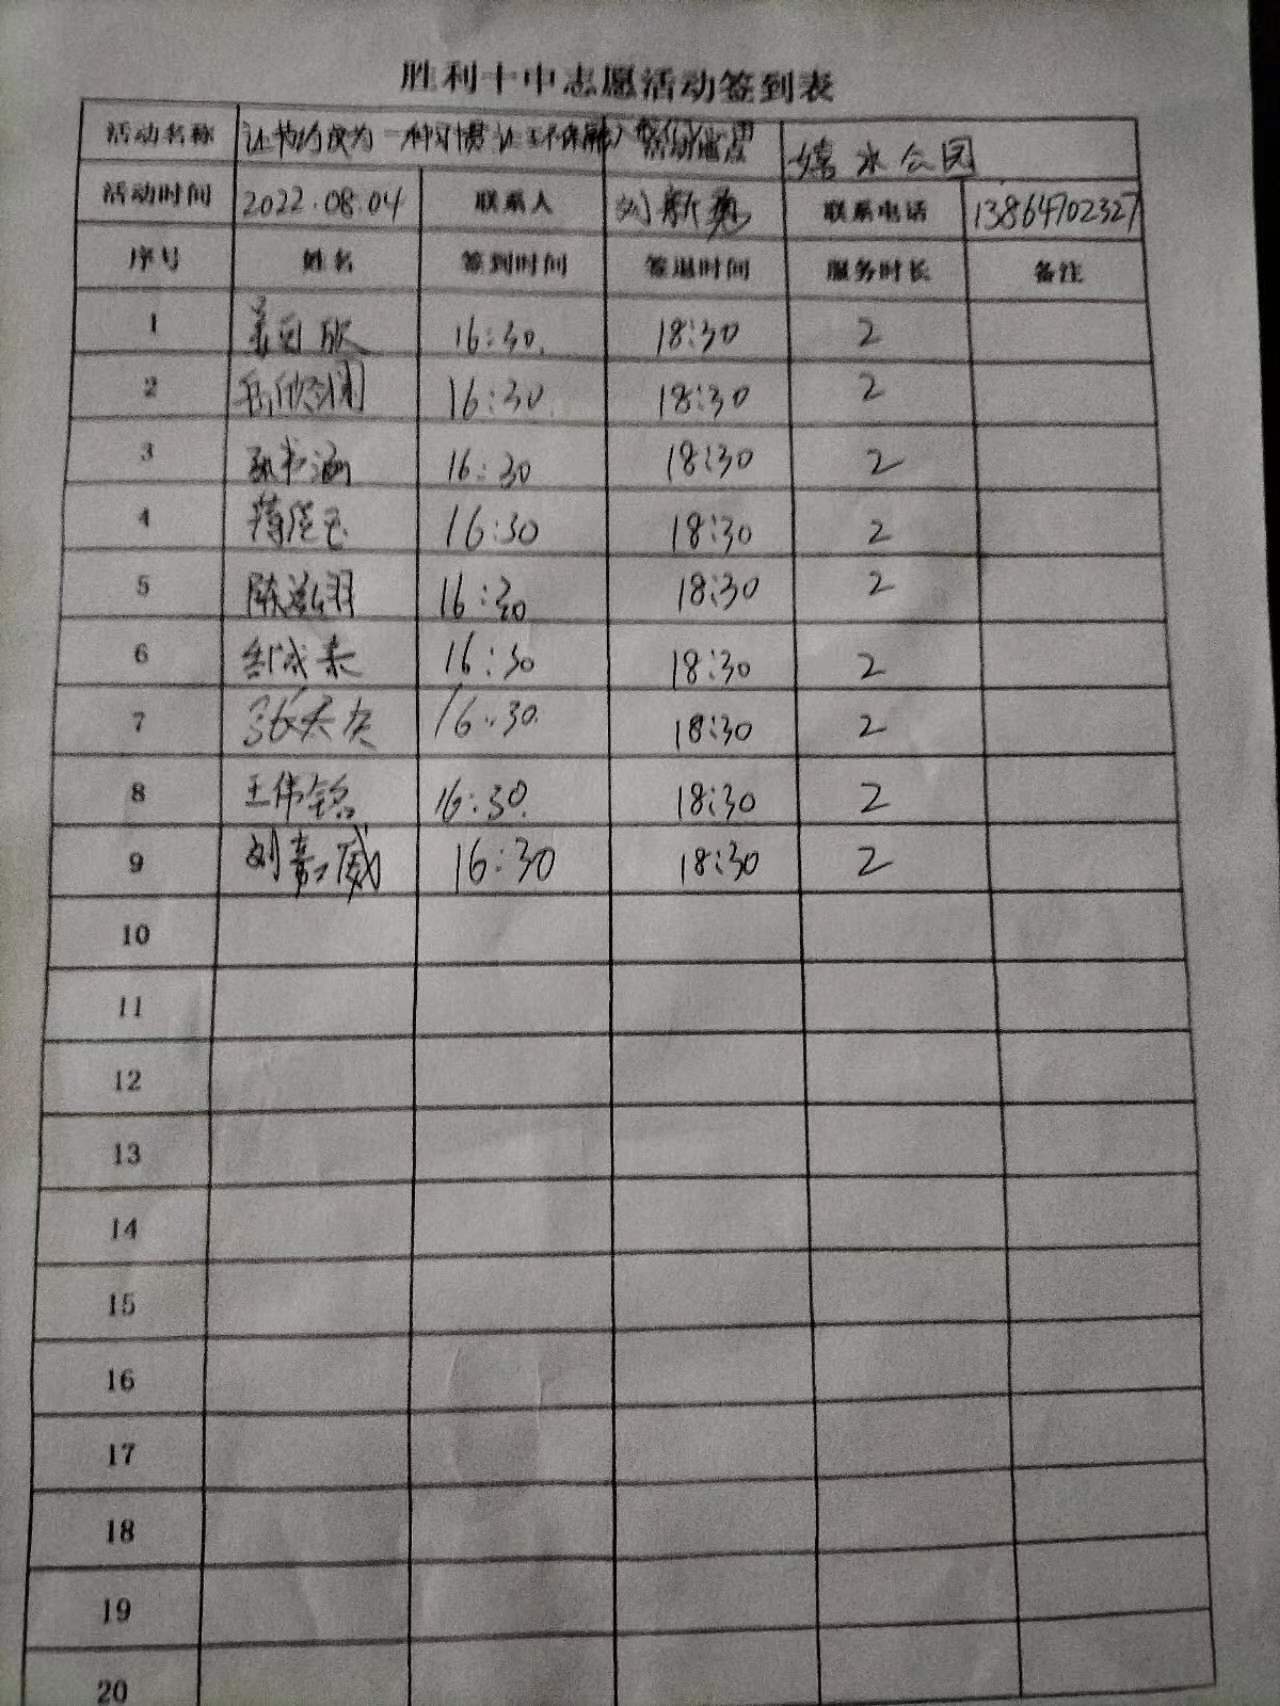 胜利十中志愿活动签到表
活动名称 让节约成为一种习惯 让环保融入 活动地点 嬉水公园
活动时间 2022.08.04 联系人 刘新 联系电话 13864702327
序号 姓名 签到时间 签退时间 服务时长 备注
1 16:30. 18:30 2
2 16:30. 18:30 2
3 孙书涵 16:30 18:30 2
4 16:30 18:30 2
5 陈泓羽 16:30 18:30 2
6 16:30 18:30 2
7 张天 16:30. 18:30 2
8 王伟铭 16:30. 18:30 2
9 刘嘉威 16:30 18:30 2
10
11
12
13
14
15
16
17
18
19
20